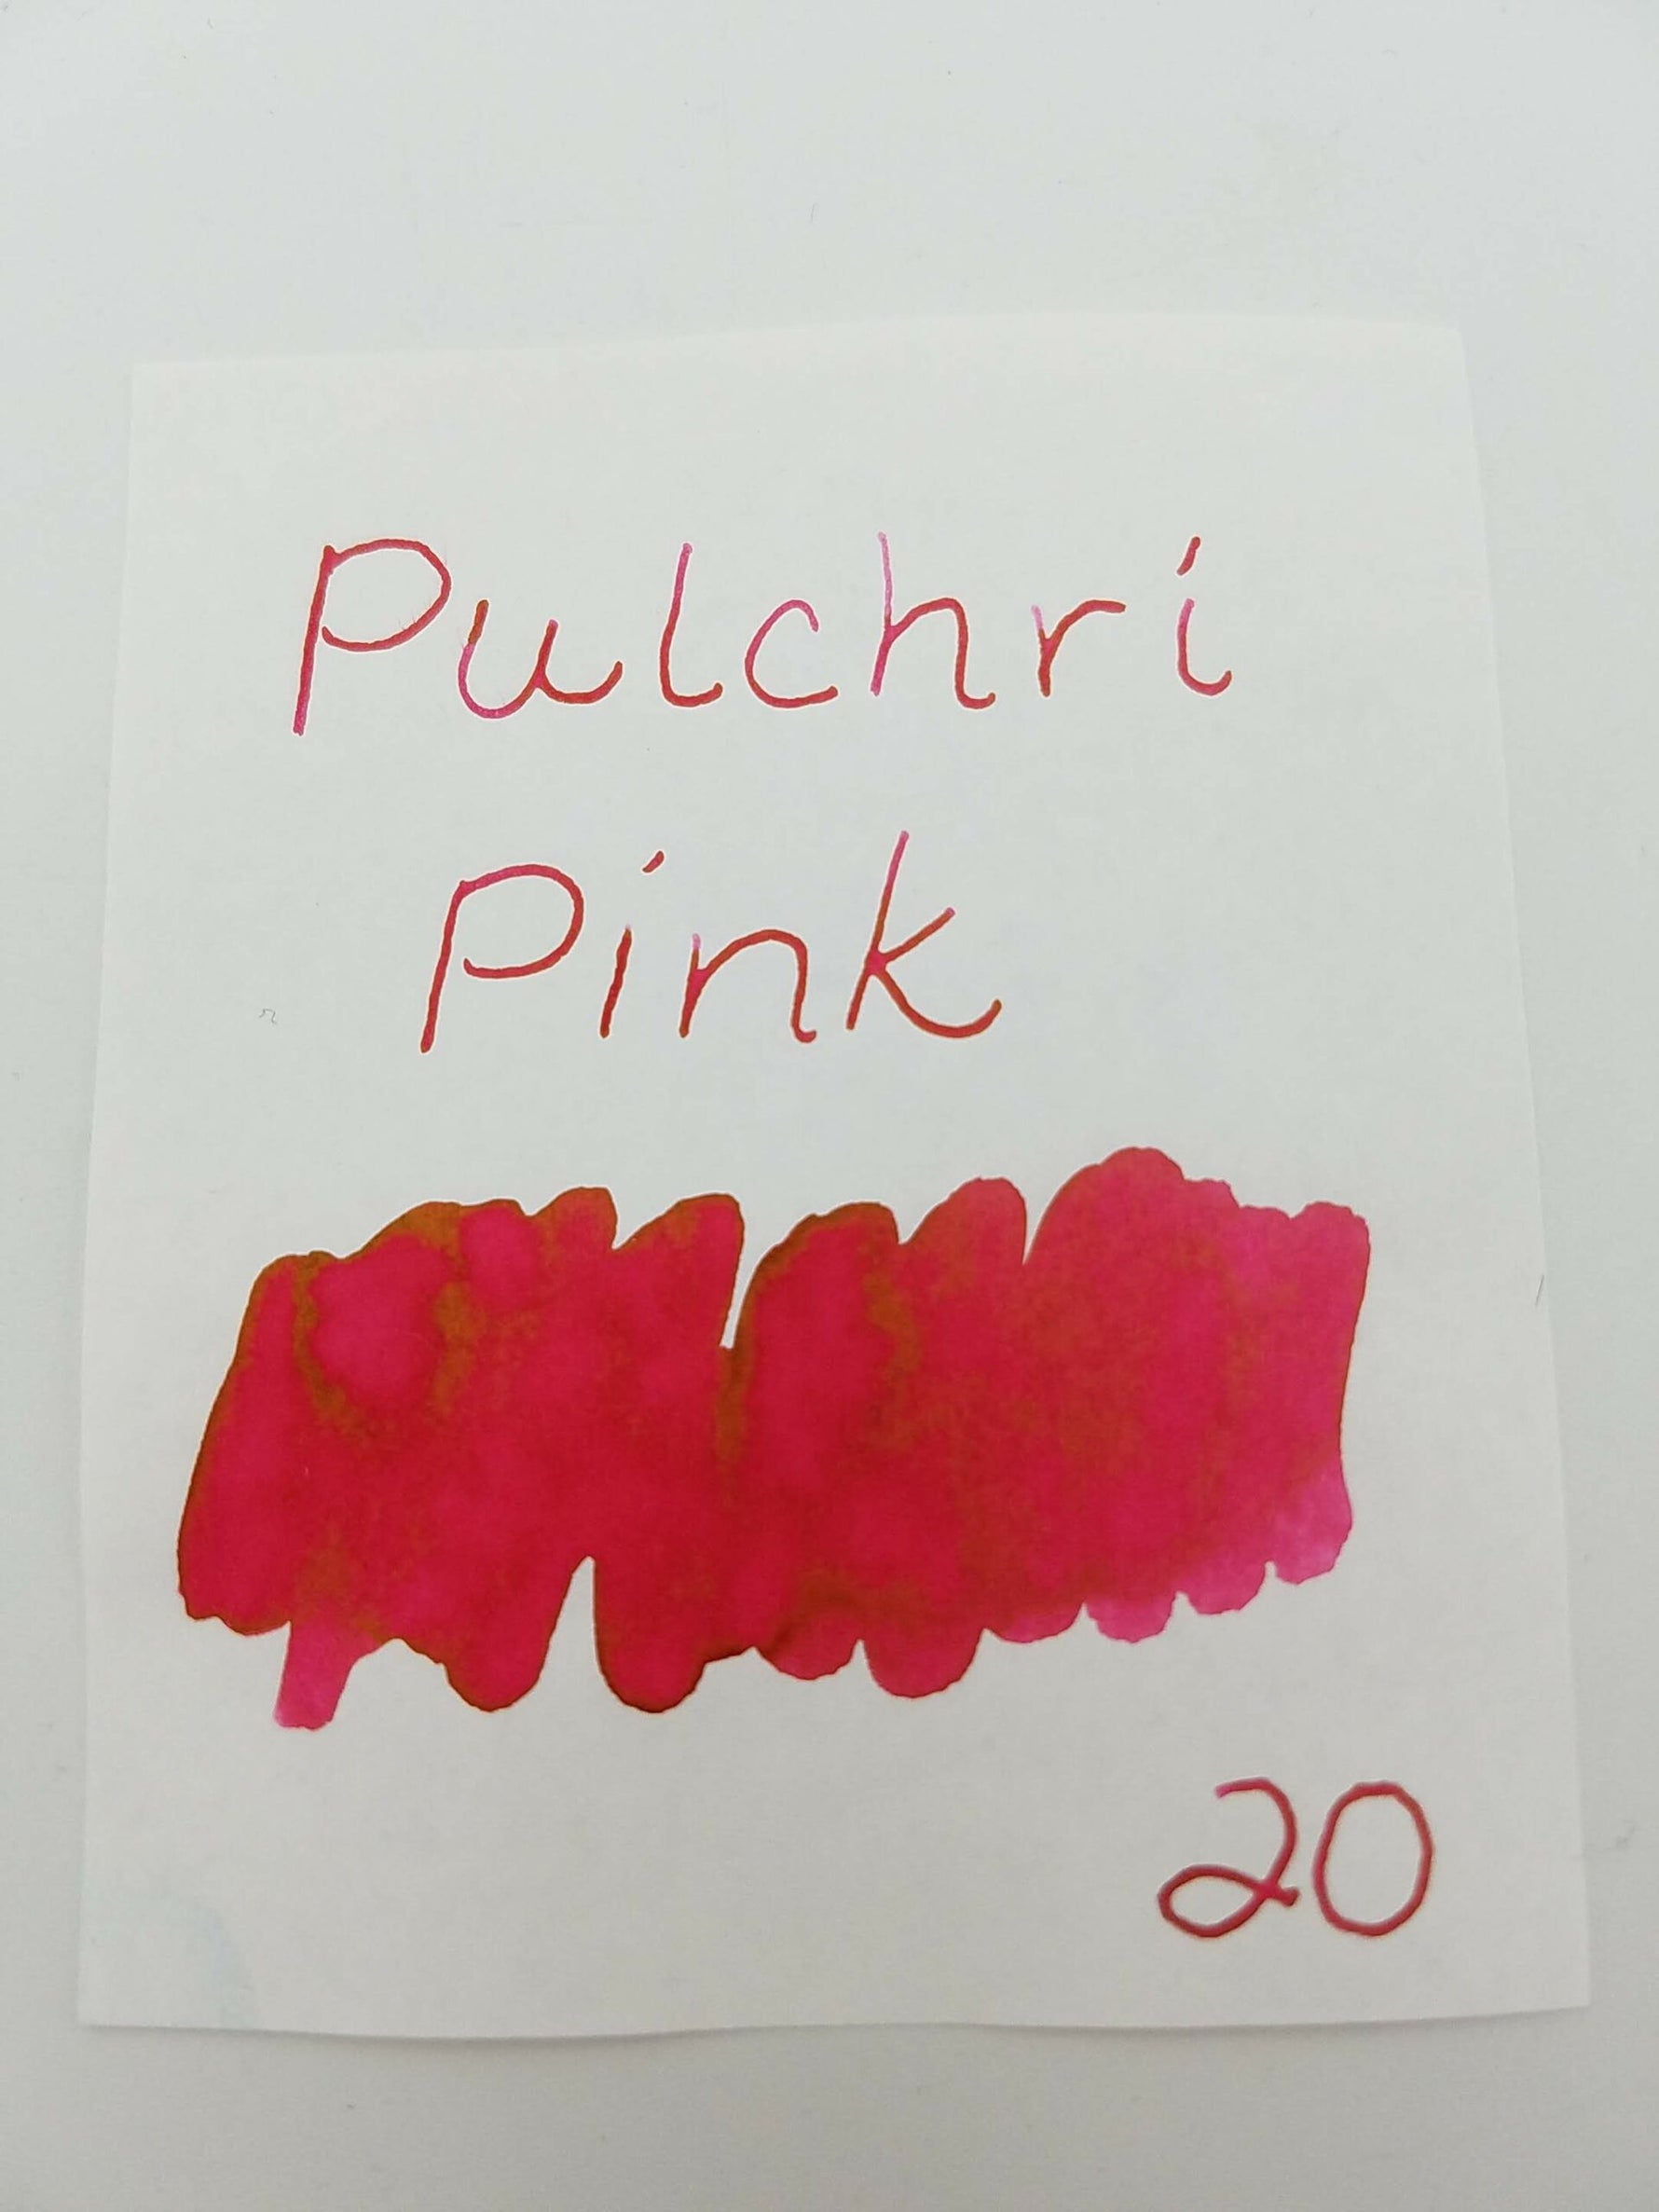 Pulchri
Pink
20